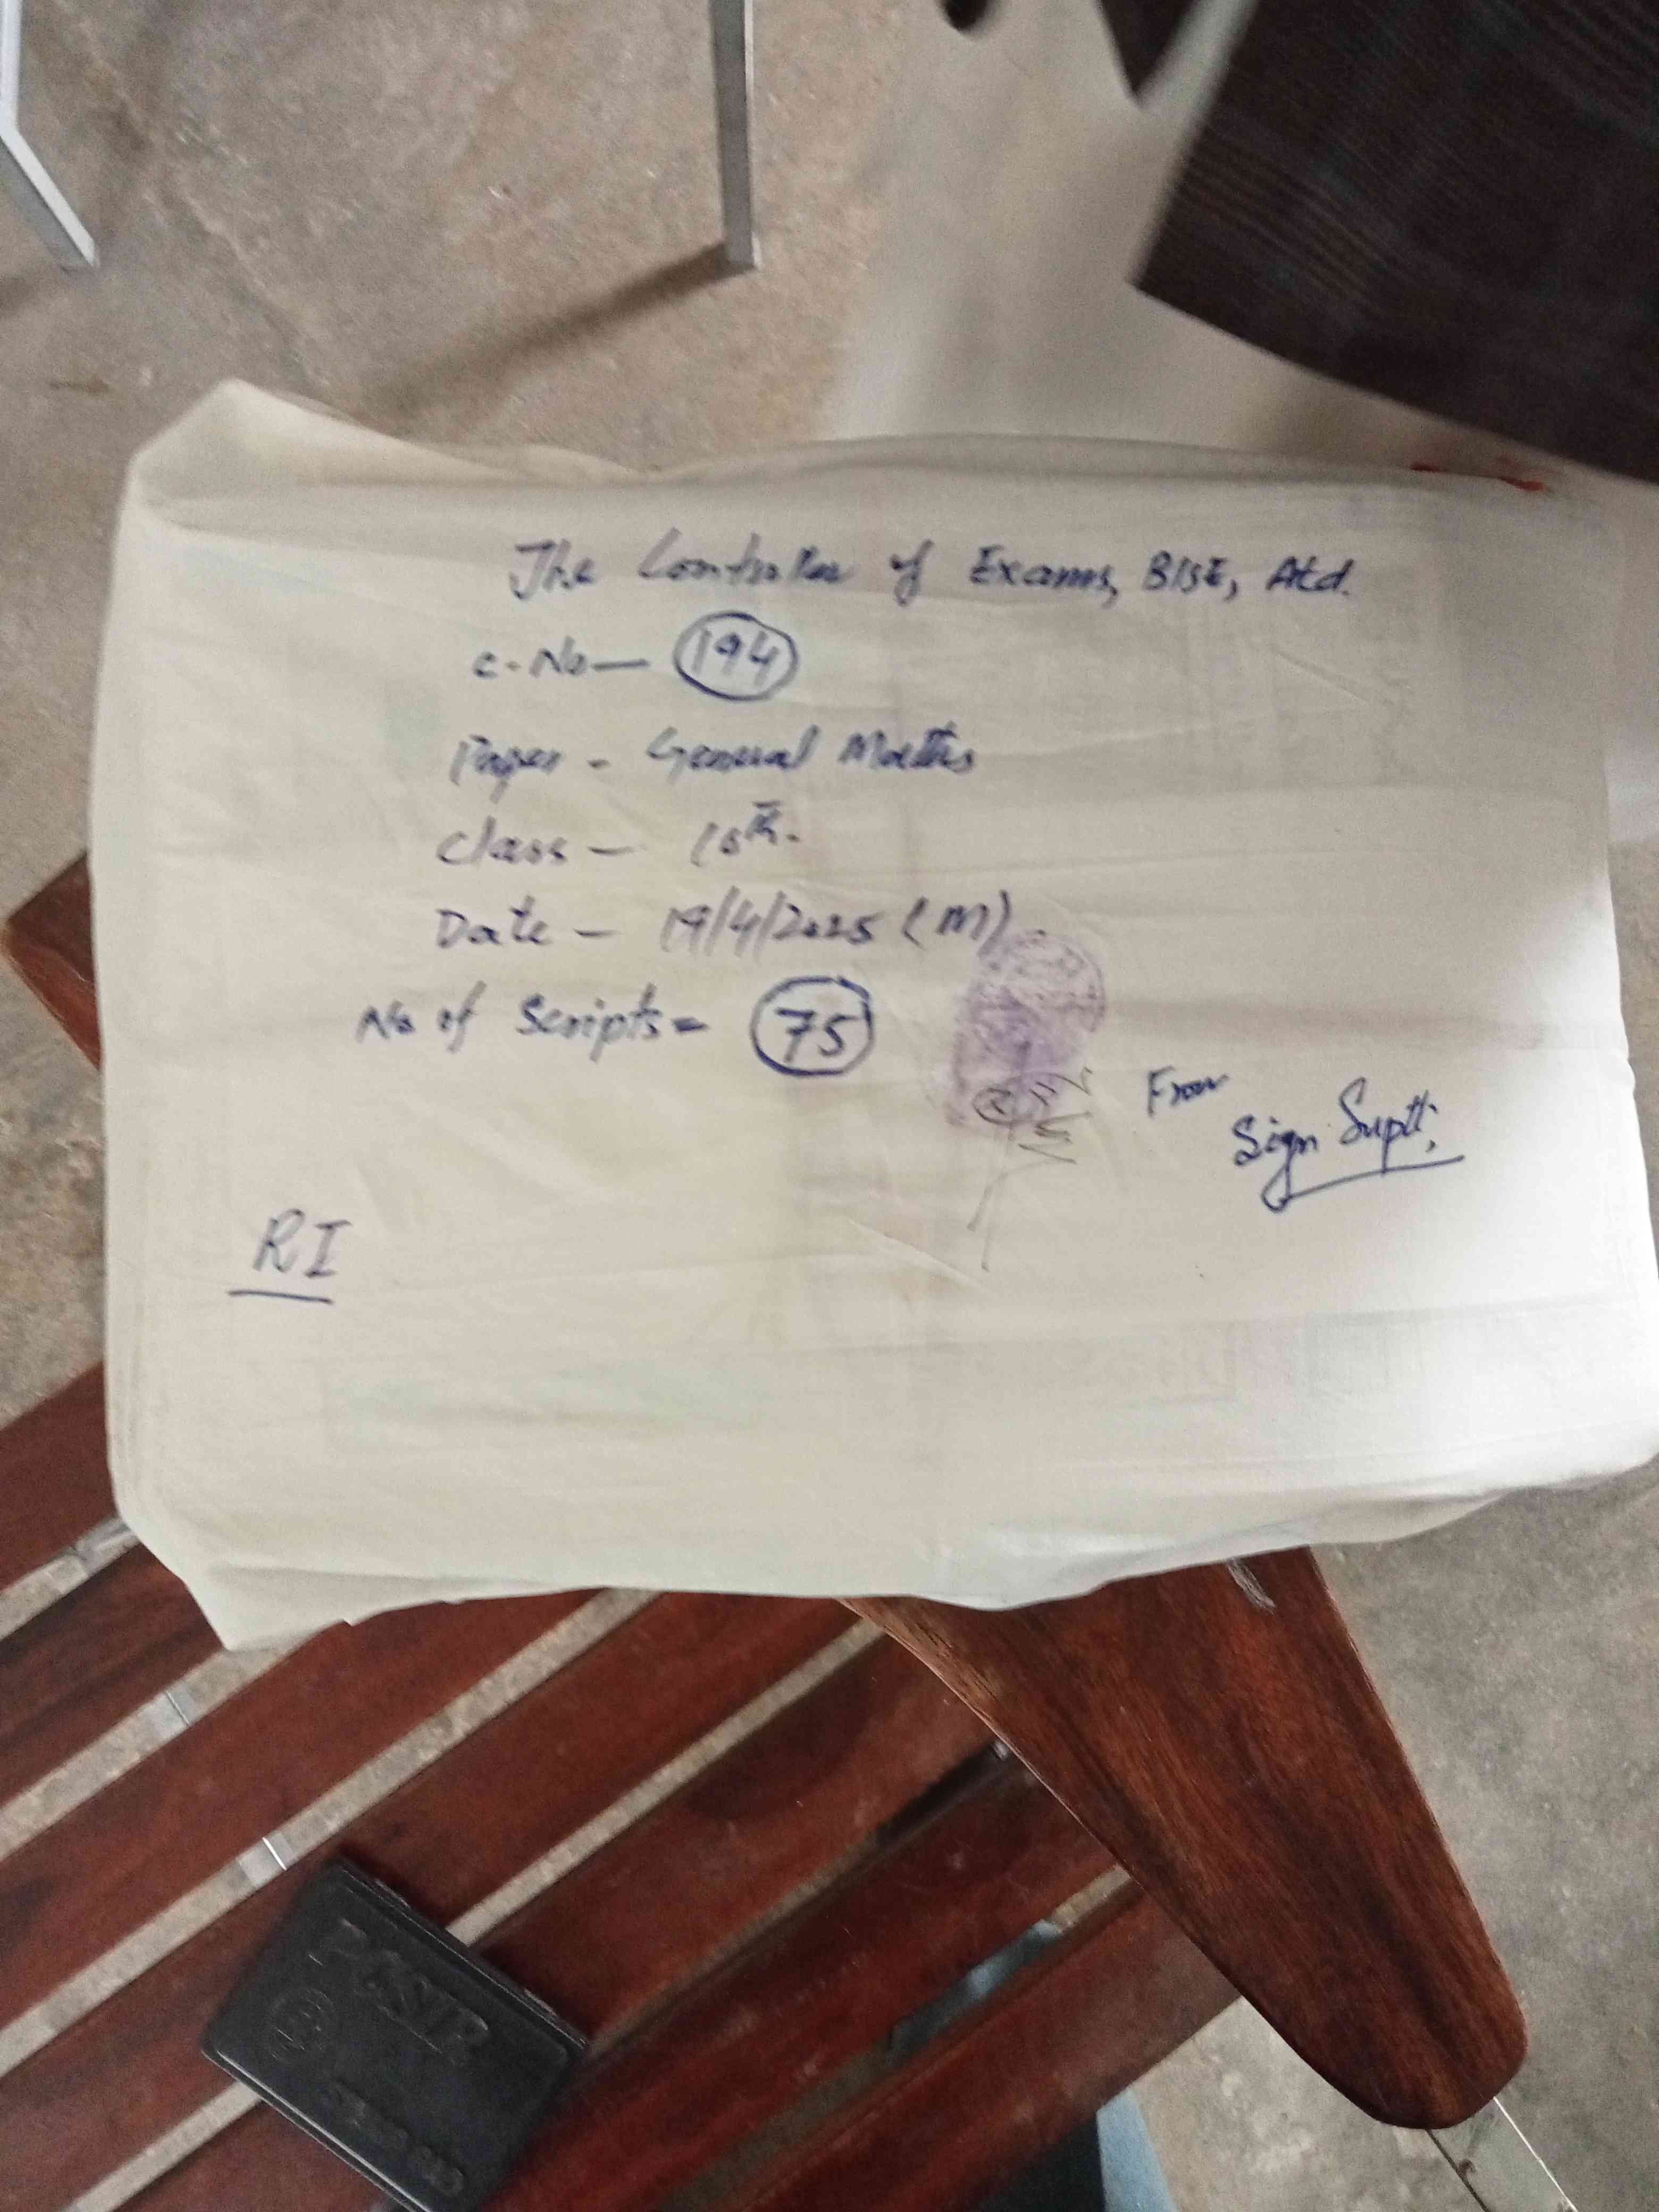 The Controller of Exams, BISE, Atd.
C. No — 194
Paper - General Maths
Class — 10th.
Date — 19/4/2025 (M)
No of Scripts = 75
From
Sign Suptt;
RI